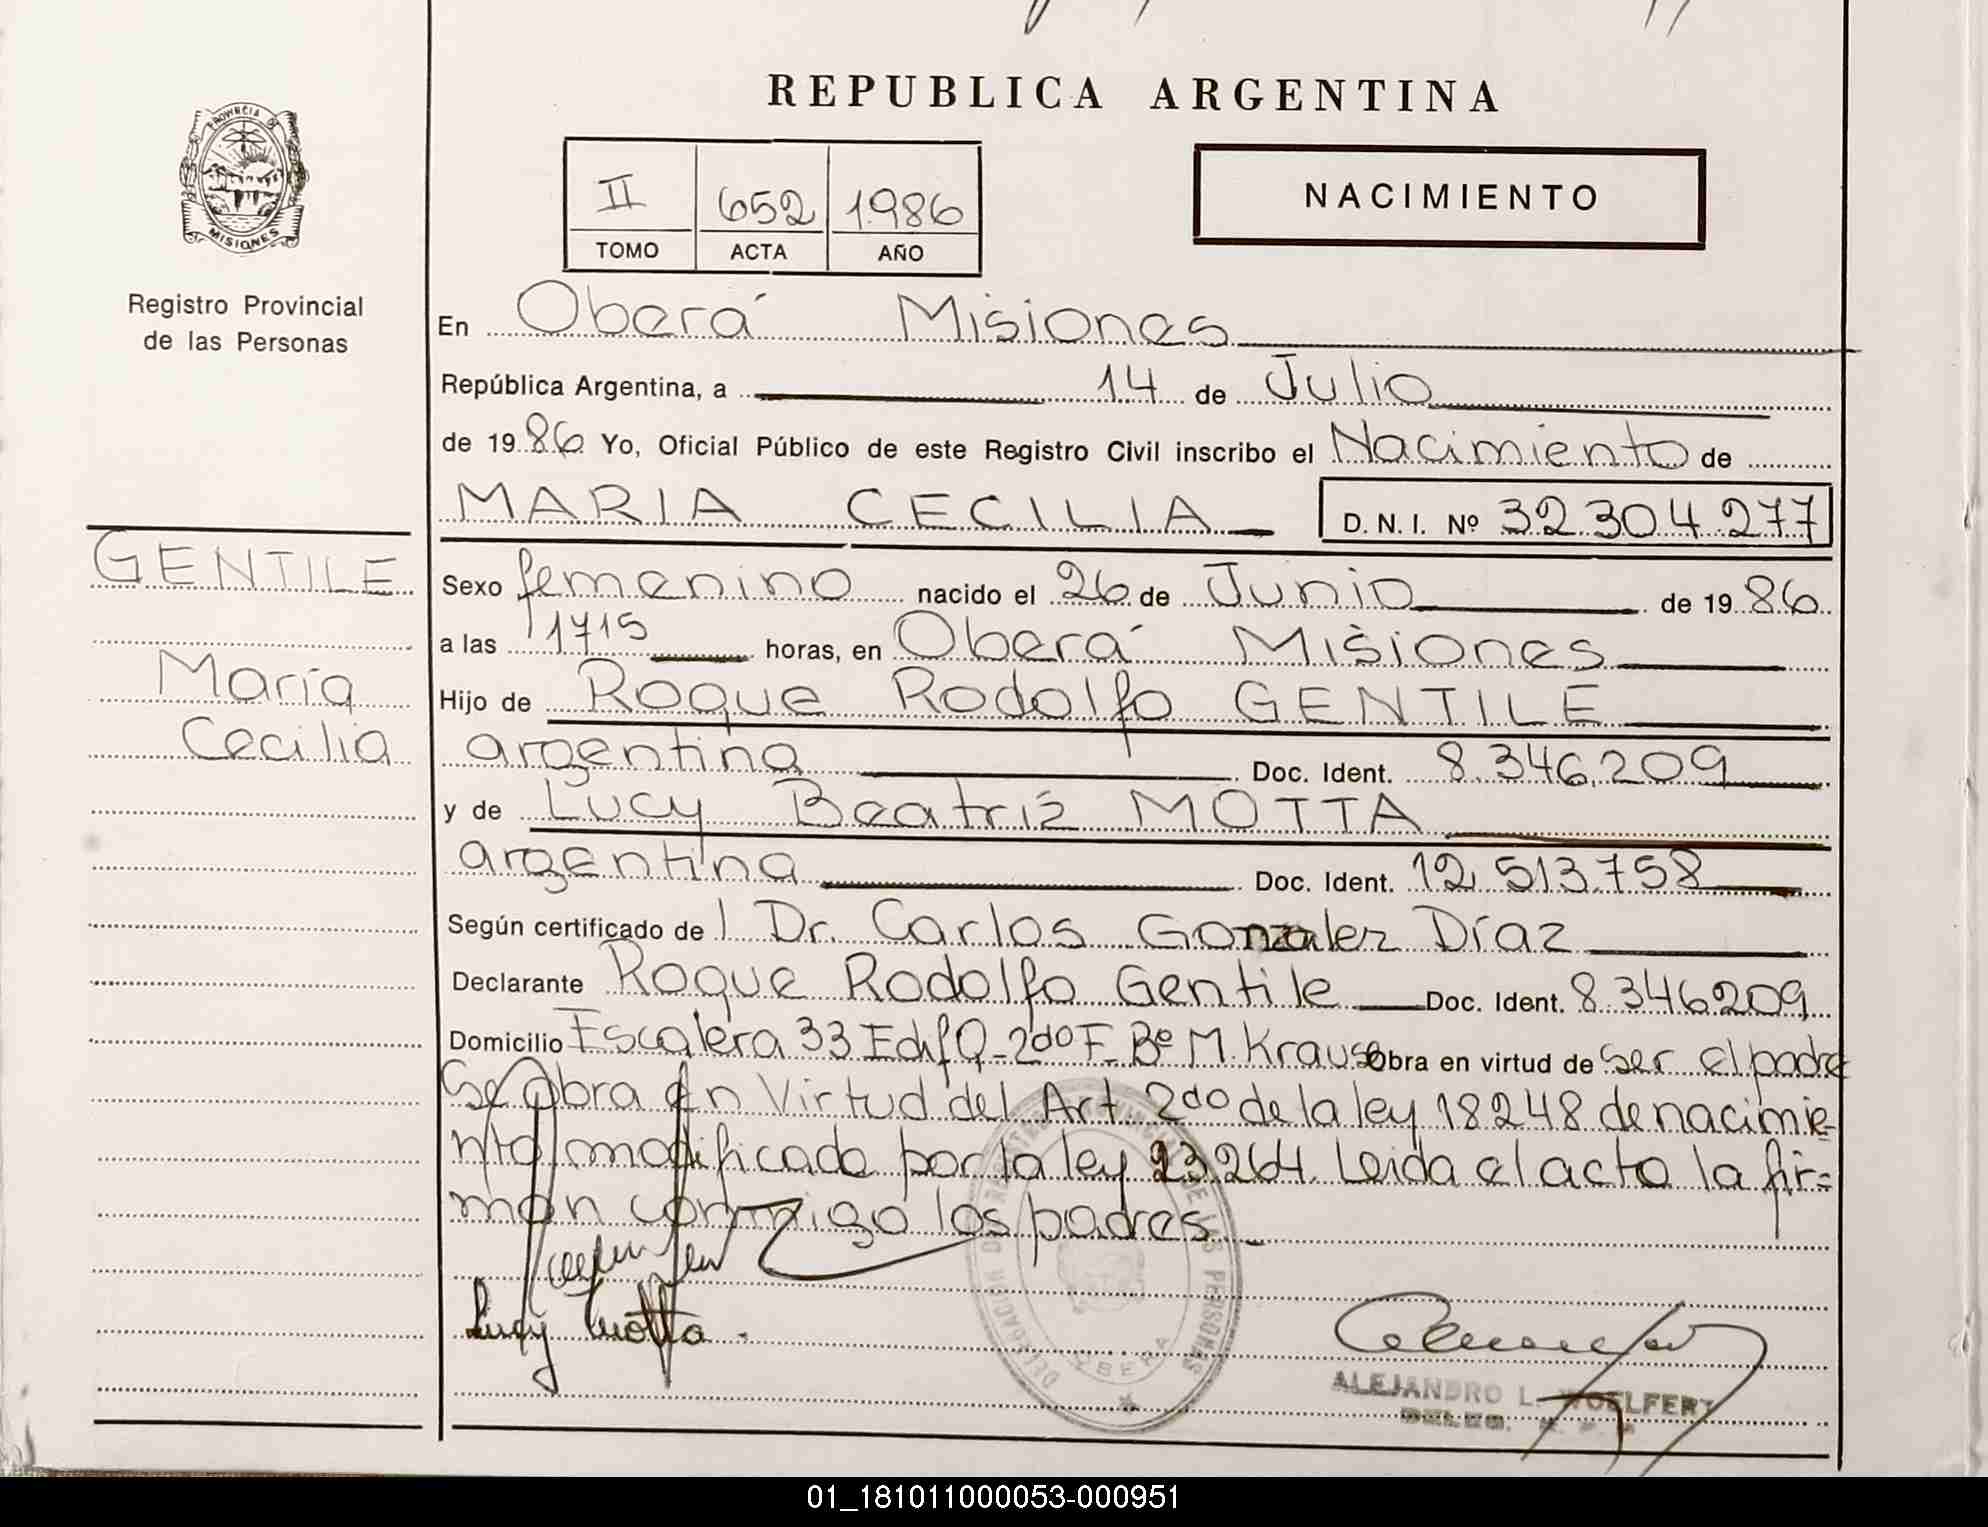 REPUBLICA ARGENTINA
PROVINCIA DE
MISIONES
Registro Provincial
de las Personas
II 652 1986
TOMO ACTA AÑO
NACIMIENTO
En Oberá Misiones
República Argentina, a 14 de Julio
de 1986 Yo, Oficial Público de este Registro Civil inscribo el Nacimiento de
MARIA CECILIA D. N. I. Nº 32.304.277
GENTILE
María
Cecilia
Sexo femenino nacido el 26 de Junio de 1986
a las 1715 horas, en Oberá Misiones
Hijo de Roque Rodolfo GENTILE
argentina Doc. Ident. 8.346.209
y de Lucy Beatriz MOTTA
argentina Doc. Ident. 12.513.758
Según certificado de l Dr. Carlos Gonzalez Díaz
Declarante Roque Rodolfo Gentile Doc. Ident. 8.346209
Domicilio Escalera 33 Edif Q-2do F-Bº M. Krause Obra en virtud de ser el padre
Se Obra en Virtud del Art 2do de la ley 18248 de nacimie-
nto modificado por la ley 23264. Leida el acto la fir=
man conmigo los padres.
Lucy Motta.
DELEGACION
DE LAS PERSONAS
OBERA
ALEJANDRO L. WOELFERT
01_181011000053-000951